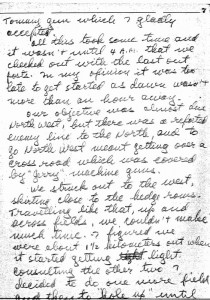 7
Tommy gun which I gladly
accepted.
All this took some time and
it wasn't until 4 A.M. that we
checked out with the last out
post. In my opinion it was too
late to get started as dawn wasn't
more than an hour away.
Our objective was almost due
North west, but there was a reported
enemy line to the North, and to
go North West meant getting over a
cross road which was covered
by "Jerry" machine guns.
We struck out to the west,
skirting close to the hedge rows.
Travelling like that, up and
across fields, we couldn't make
much time. I figured we
were about 1½ kilometers out when
it started getting light.
Consulting the other two I
decided to do one more field
and then to "hole up" until